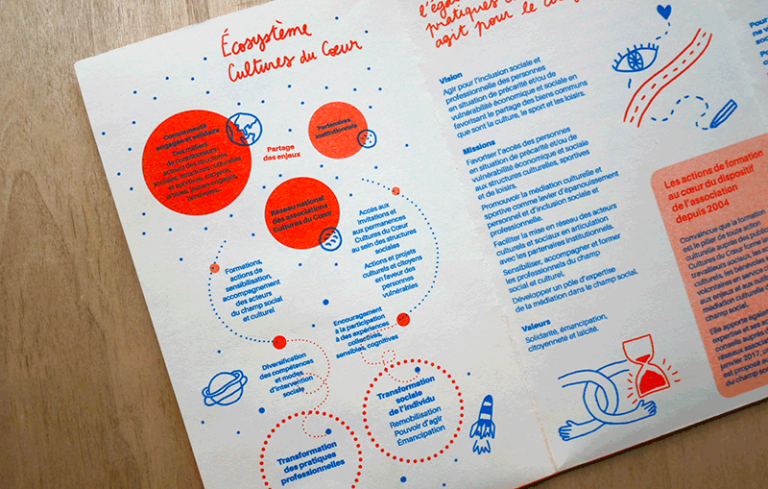 Écosystème
Cultures du Cœur
Communauté
engagée et solidaire
Des milliers
Partenaires
institutionnels
Partage
des enjeux
Réseau national
des associations
Cultures du Cœur
Accès aux
invitations et
aux permanences
Cultures du Cœur
au sein des structures
sociales
Actions et projets
culturels et citoyens
en faveur des
personnes
vulnérables
Formations,
actions de
sensibilisation,
accompagnement
des acteurs
du champ social
et culturel
Encouragement
à la participation
à des expériences
collectives,
sensibles, cognitives
Diversification
des compétences
et modes
d'intervention
sociale
Transformation
sociale
de l'individu
Remobilisation
Pouvoir d'agir
Émancipation
Transformation
des pratiques
professionnelles
l'éga
pratiques
agit pour le
Vision
Agir pour l'inclusion sociale et
professionnelle des personnes
en situation de précarité et/ou de
vulnérabilité économique et sociale en
favorisant le partage des biens communs
que sont la culture, le sport et les loisirs.
Missions
Favoriser l'accès des personnes
en situation de précarité et/ou de
vulnérabilité économique et sociale
aux structures culturelles, sportives
et de loisirs.
Promouvoir la médiation culturelle et
sportive comme levier d'épanouissement
personnel et d'inclusion sociale et
professionnelle.
Faciliter la mise en réseau des acteurs
culturels et sociaux en articulation
avec les partenaires institutionnels.
Sensibiliser, accompagner et former
les professionnels du champ
social et culturel.
Développer un pôle d'expertise
de la médiation dans le champ social.
Valeurs
Solidarité, émancipation,
citoyenneté et laïcité.
Pour
ne v
soci
Les actions de formation
au cœur du dispositif
de l'association
depuis 2004
Convaincue que la formation
est le pilier de toute action
culturelle auprès des
Cultures du Cœur
travailleurs sociaux, les
culturels, les bénévoles
volontaires en service
aux enjeux et aux
médiation culturelle
champ social.
Elle apporte également
expertise et ses
conseils auprès
réseau
janvier 2017,
est proposé
du champ so